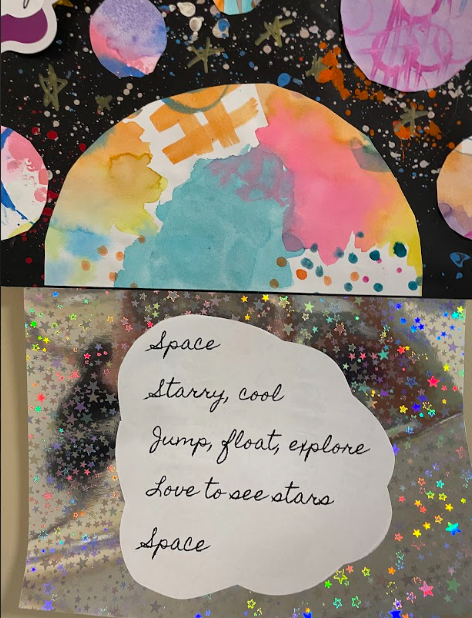 Space
Starry, cool
Jump, float, explore
Love to see stars
Space